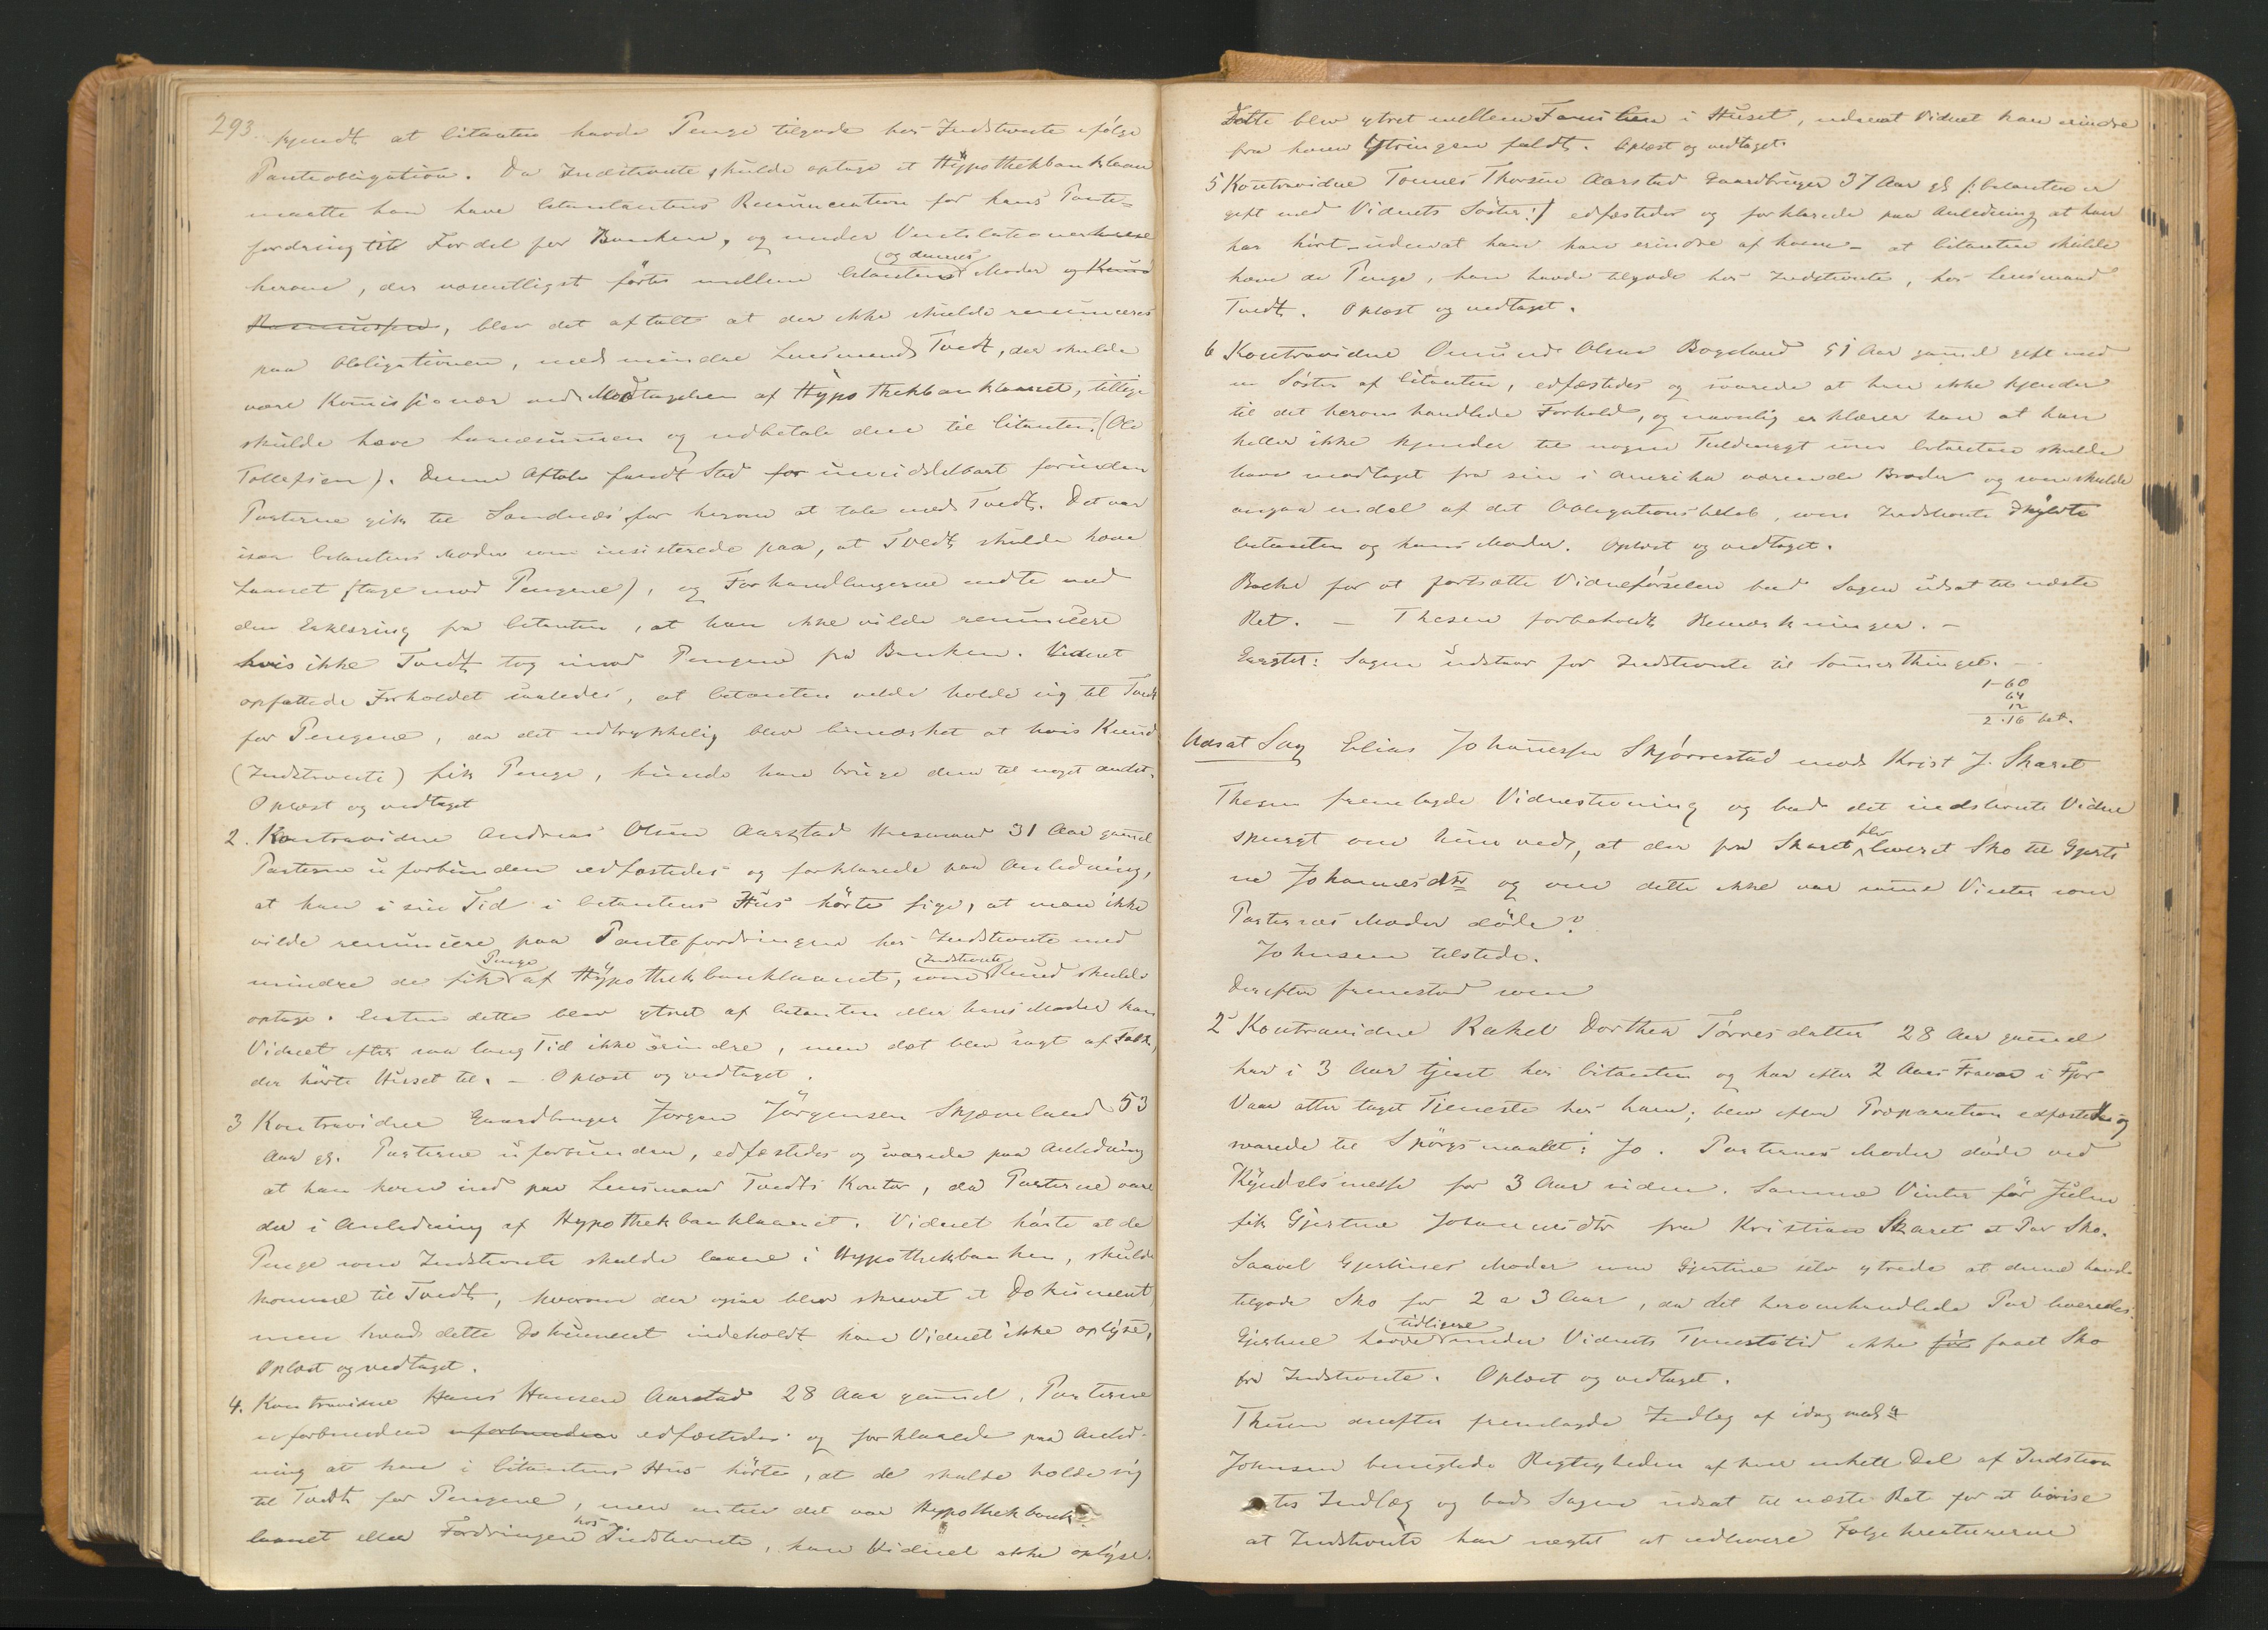 293.
kjendt at Citanten havde Penge tilgode hos Indstevnte ifølge
Panteobligation. Da Indstevnte skulde optage et Hypothekbanklaan
maatte han have Citantens Renunciation for hans Pante-
fordring til Fordel for Banken, og under Ventilationerne
herom, der væsentligst førtes mellem Citanten og dennes Moder og Knud
Rasmussen, blev det aftalt at der ikke skulde renunceres
paa Obligationen, med mindre Lensmand Tvedt, der skulde
være Kommissionær ved Modtagelsen af Hypothekbanklaanet, tillige
skulde hæve Laanesummen og udbetale den til Citanten. (Ole
Tollefsen). Denne Aftale fandt Sted for umiddelbart forinden
Parterne gik til Sandnæs for herom at tale med Tvedt. Det var
især Citantens Moder som insisterede paa, at Tvedt skulde hæve
Laanet (tage mod Pengene), og Forhandlingerne endte med
den Erklæring fra Citanten, at han ikke vilde renuncere
hvis ikke Tvedt tog imod Pengene fra Banken. Vidnet
opfattede Forholdet saaledes, at Citanten vilde holde sig til Tvedt
for Pengene, da det udtrykkelig blev bemærket at hvis Knud
(Indstevnte) fik Penge, kunde han bruge dem til noget andet.
Oplæst og vedtaget
2. Kontravidne Andreas Olsen Aarstad Husmand 31 Aar gammel
Parterne uforbunden edfæstedes og forklarede paa Anledning,
at han i sin Tid i Citantens Hus hørte sige, at man ikke
vilde renuncere paa Pantefordringen hos Indstevnte med
mindre de fik Penge af Hypothekbanklaanet, som Indstevnte Knud skulde
optage. Enten dette blev ytret af Citanten eller hans Moder kan
Vidnet efter saa lang Tid ikke erindre, men det blev sagt af Folk,
der hørte Huset til. – Oplæst og vedtaget.
3 Kontravidne Gaardbruger Jørgen Jörgensen Skjæveland 53
Aar gl. Parterne uforbunden, edfæstedes og svarede paa Anledning
at han kom ind paa Lensmand Tvedts Kontor, da Parterne vare
der i Anledning af Hypothekbanklaanet. Vidnet hørte at de
Penge som Indstevnte skulde laane i Hypothekbanken, skulde
komme til Tvedt, hvorom der ogsaa blev skrevet et Dokument,
men hvad dette Dokument indeholdt kan Vidnet ikke oplyse.
Oplæst og vedtaget.
4. Kontravidne Hans Hansen Aarstad 28 Aar gammel, Parterne
uforbunden uforbunden edfæstedes og forklarede paa Anled-
ning at han i Citantens Hus hørte, at de skulde holde sig
til Tvedt for Pengene, men enten det var Hypothekbank-
laanet eller Fordringen hos Indstevnte, kan Vidnet ikke oplyse.
Dette blev ytret mellem Familien i Huset, uden at Vidnet kan erindre
fra hvem Ytringen faldt. Oplæst og vedtaget.
5 Kontravidne Tønnes Thorsen Aarstad Gaardbruger 37 Aar gl /: Citanten er
gift med Vidnets Søster :/ edfæstedes og forklarede paa Anledning at han
har hørt – uden at han kan erindre af hvem – at Citanten skulde
hæve de Penge, han havde tilgode hos Indstevnte, hos Lensmand
Tvedt. Oplæst og vedtaget.
6 Kontravidne Omund Olsen Bogeland 51 Aar gammel gift med
en Søster af Citanten, edfæstedes og svarede at han ikke kjender
til det herom handlede Forhold, og navnlig erklærer han at han
heller ikke kjender til nogen Fuldmagt som Citanten skulde
have modtaget fra sin i Amerika værende Broder og som skulde
angaa en del af det Obligationsbeløb, som Indstevnte skyldte
Citanten og hans Moder. Oplæst og vedtaget.
Bache for at fortsætte Vidneførselen bad Sagen udsat til næste
Ret. – Thesen forbeholdt Bemærkninger. –
Eragtet: Sagen udstaar for Indstevnte til Sommerthinget. –
1–60
64
12
2.16 bet.
Udsat Sag Elias Johannessen Skjørrestad mod Krist J. Skaret
Thesen fremlagde Vidnestevning og bad det indstevnte Vidne
spurgt om hun ved, at der fra Skaret blev leveret Sko til Gjerti
ne Johannesdtr og om dette ikke var samme Vinter som
Parternes Moder døde?
Johnsen tilstede.
Derefter fremstod som
2det Kontravidne Rakel Dorthea Tørresdatter 28 Aar gammel
har i 3 Aar tjent hos Citanten og har efter 2 Aars Fravær i Fjor
Vaar atter taget Tjeneste hos ham; blev efter Præparation edfæstet og
svarede til Spörgsmaalet: Jo. Parternes Moder døde ved
Kyndelsmesse for 3 Aar siden. Samme Vinter før Julen
fik Gjertine Johannesdtr fra Kristian Skaret et Par Sko.
Saavel Gjertines Moder som Gjertine selv ytrede at denne havde
tilgode Sko for 2 a 3 Aar, da det heromhandlede Par leveredes.
Gjertine havde tidligere under Vidnets Tjenestetid ikke før faaet Sko
fra Indstevnte. Oplæst og vedtaget.
Thesen derefter fremlagde Indlæg af idag med
Johnsen benegtede Rigtigheden af hver enkelt Del af Indstevn
tes Indlæg og bad Sagen udsat til næste Ret for at bevise
at Indstevnte har nægtet at udlevere Følgekreaturerne